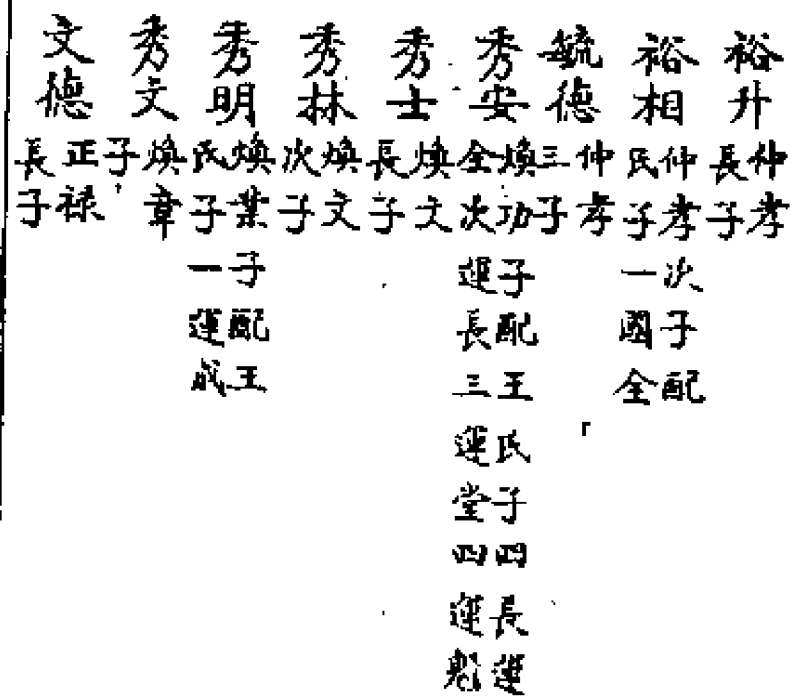 裕升
仲孝
長子
裕相
仲孝次子配
氏子一國全
毓德
仲孝
三子
秀安
煥功子配王氏子四長運
全次運長三運堂四運魁
秀士
煥文
長子
秀林
煥文
次子
秀明
煥葉子配王
氏子一運成
秀文
煥章
子
文德
正禄
長子